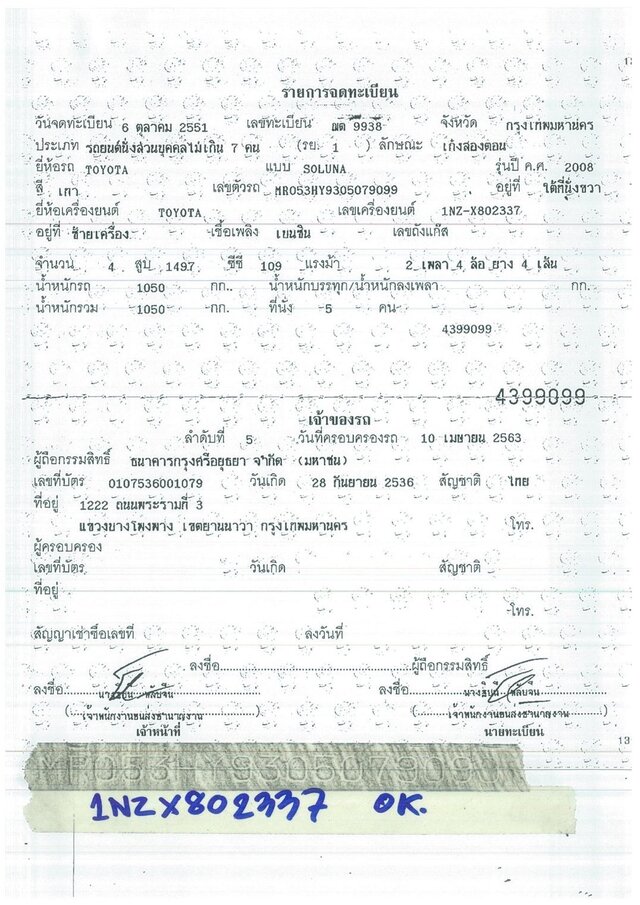 13
รายการจดทะเบียน
วันจดทะเบียน 6 ตุลาคม 2551 เลขทะเบียน 9938 จังหวัด กรุงเทพมหานคร
ประเภท รถยนต์นั่งส่วนบุคคลไม่เกิน 7 คน (รย. 1 ) ลักษณะ เก๋งสองตอน
ยี่ห้อรถ TOYOTA แบบ SOLUNA รุ่นปี ค.ศ. 2008
สี เทา เลขตัวรถ MR053HY9305079099 อยู่ที่ ใต้ที่นั่งขวา
ยี่ห้อเครื่องยนต์ TOYOTA เลขเครื่องยนต์ 1NZ-X802337
อยู่ที่ ซ้ายเครื่อง เชื้อเพลิง เบนซิน เลขถังแก๊ส
จำนวน 4 สูบ 1497 ซีซี 109 แรงม้า 2 เพลา 4 ล้อ ยาง 4 เส้น
น้ำหนักรถ 1050 กก. น้ำหนักบรรทุก/น้ำหนักลงเพลา กก.
น้ำหนักรวม 1050 กก. ที่นั่ง 5 คน
4399099
4399099
เจ้าของรถ
ลำดับที่ 5 วันที่ครอบครองรถ 10 เมษายน 2563
ผู้ถือกรรมสิทธิ์ ธนาคารกรุงศรีอยุธยา จำกัด (มหาชน)
เลขที่บัตร 0107536001079 วันเกิด 28 กันยายน 2536 สัญชาติ ไทย
ที่อยู่ 1222 ถนนพระรามที่ 3
แขวงบางโพงพาง เขตยานนาวา กรุงเทพมหานคร โทร.
ผู้ครอบครอง
เลขที่บัตร วันเกิด สัญชาติ
ที่อยู่
โทร.
สัญญาเช่าซื้อเลขที่ ลงวันที่
ลงชื่อ ผู้ถือกรรมสิทธิ์
ลงชื่อ ลงชื่อ
(เจ้าพนักงานขนส่งชำนาญงาน) (เจ้าพนักงานขนส่งชำนาญงาน)
เจ้าหน้าที่ นายทะเบียน
13
1NZX802337 OK.